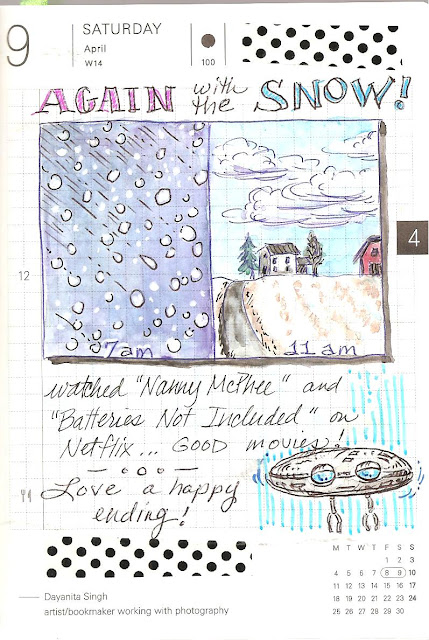 9
SATURDAY
April
W14
100
AGAIN with the SNOW!
4
12
7am
11am
watched "Nanny McPhee" and
"Batteries Not Included" on
Netflix... GOOD movies!
Love a happy
ending!
Dayanita Singh
artist/bookmaker working with photography
M T W T F S S
1 2 3
4 5 6 7 8 9 10
11 12 13 14 15 16 17
18 19 20 21 22 23 24
25 26 27 28 29 30